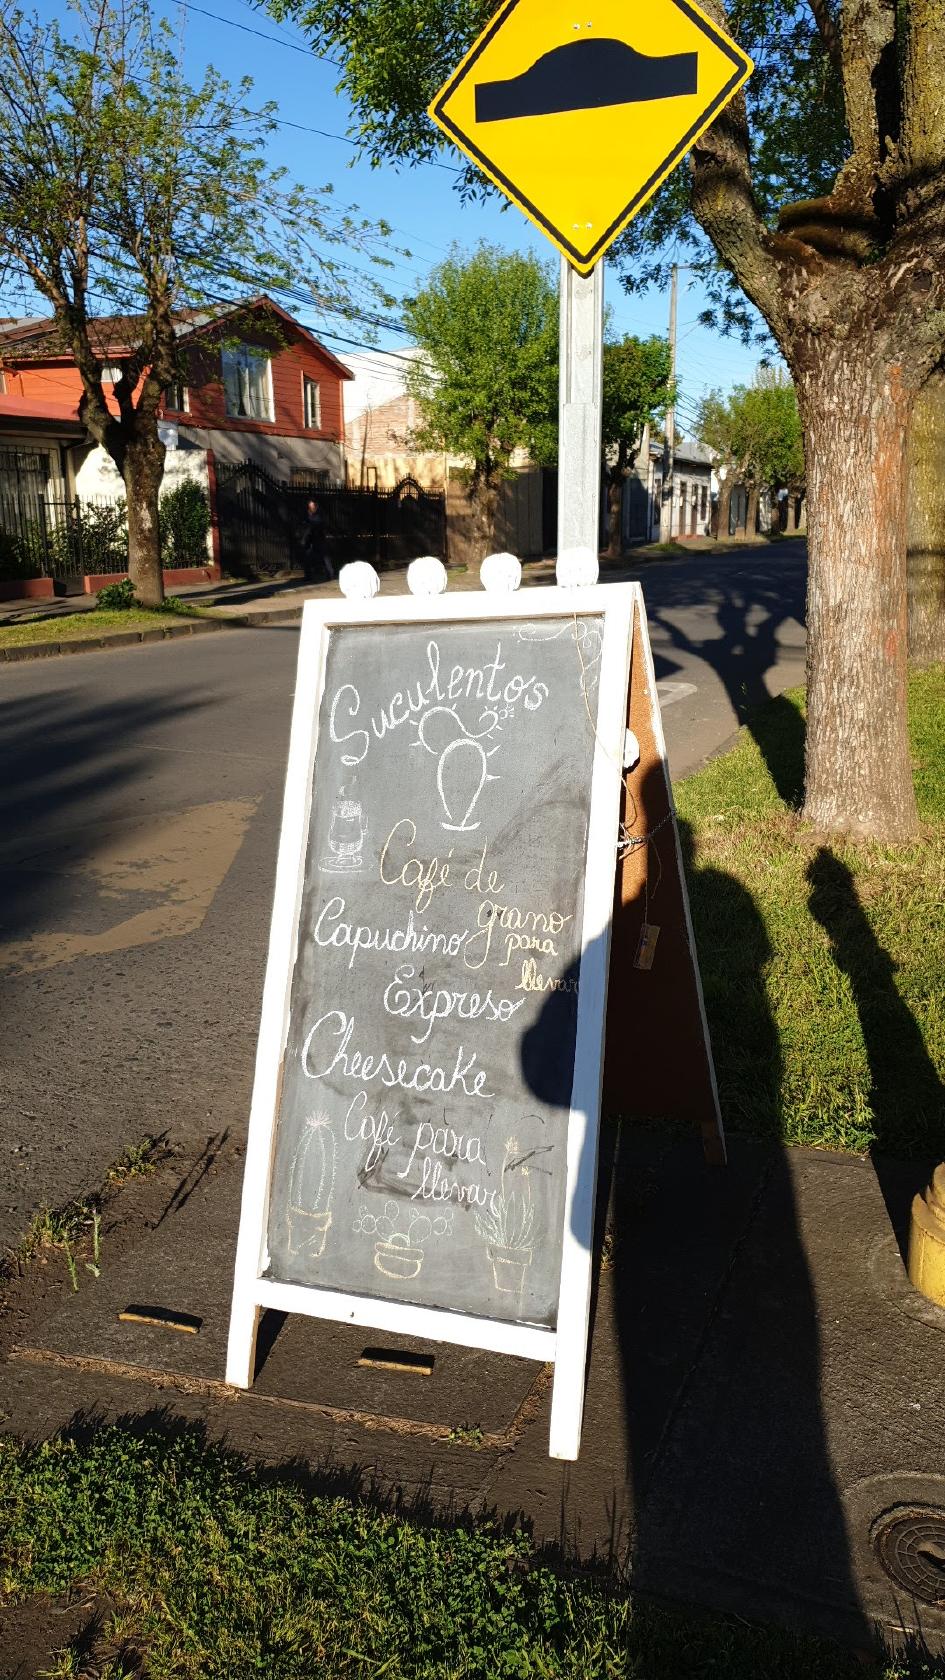 Suculentos
Café de
grano
para
llevar
Capuchino
Expreso
Cheesecake
Café para
llevar